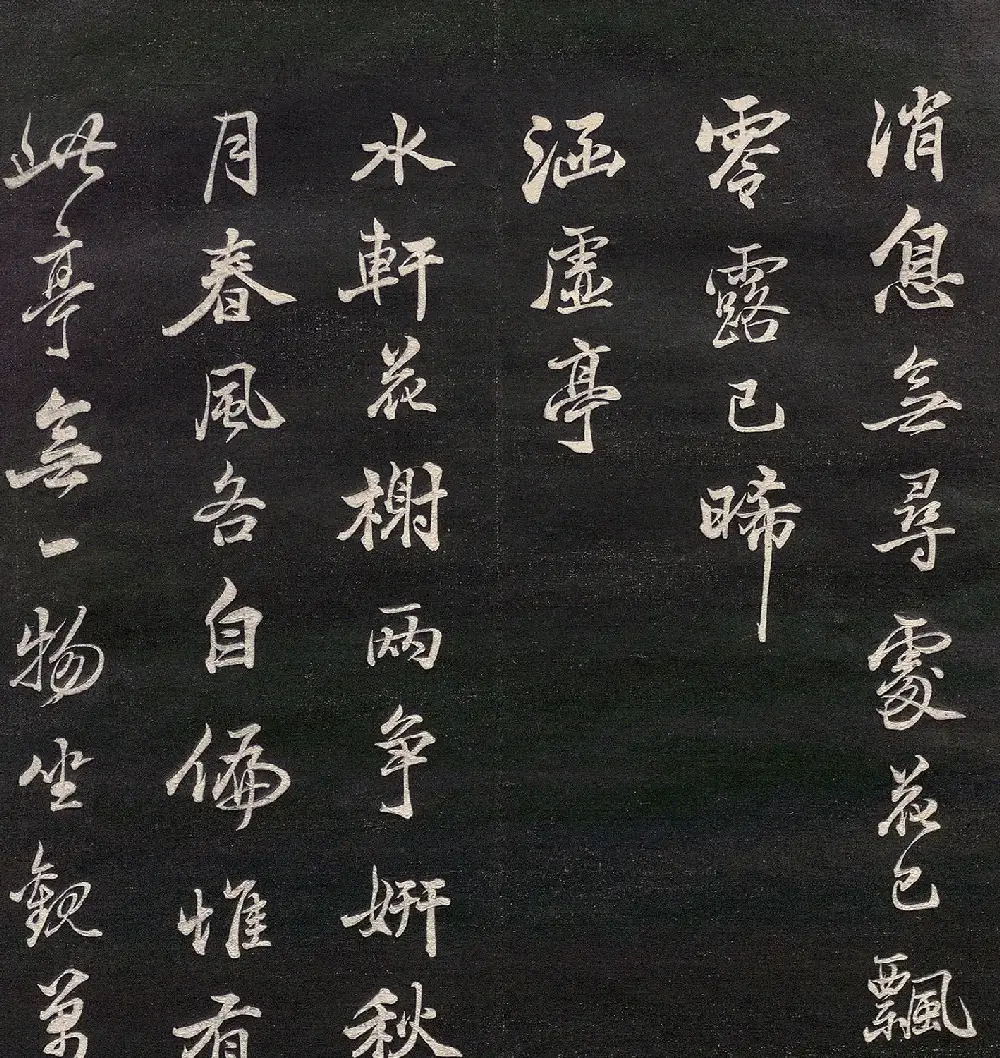 消息無尋處花已飄
零露已晞
涵虛亭
水軒花榭兩争妍秋
月春風各自偏惟有
此亭無一物坐觀萬